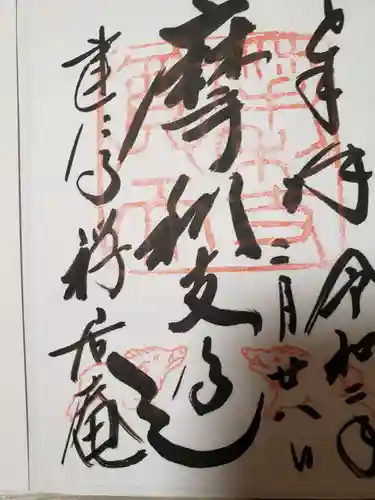 奉拝 令和二年
二月廿八日
摩利支尊天
建仁寺 禅居庵